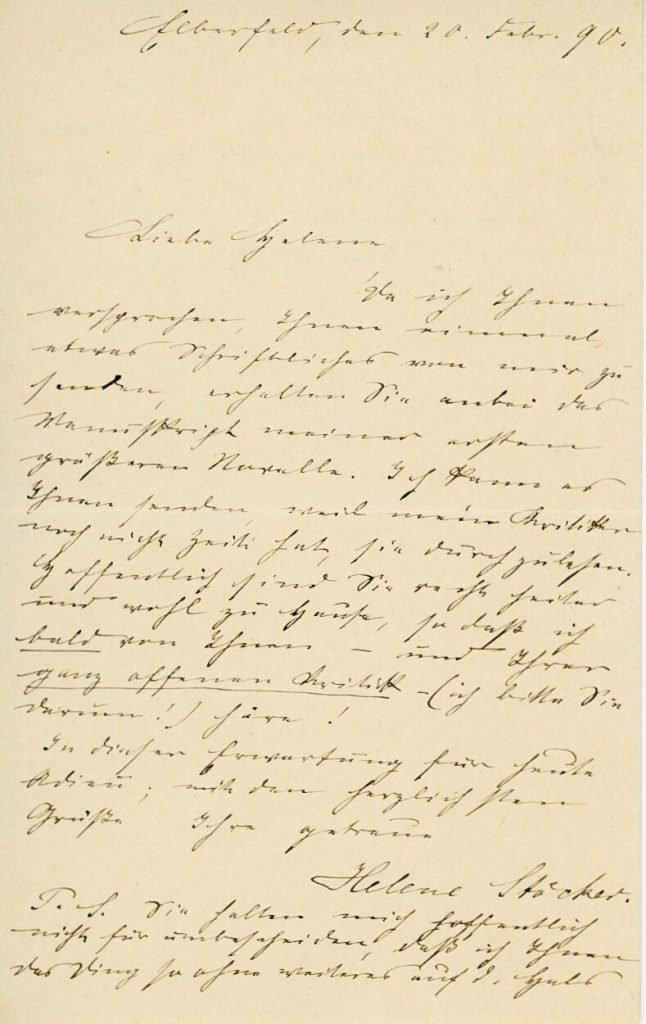 Elberfeld, den 20. Febr. 90.
Liebe Helene
Da ich Ihnen
versprochen, Ihnen einmal,
etwas Schriftliches von mir zu
senden, erhalten Sie anbei das
Manuskript meiner ersten
größeren Novelle. Ich kann es
Ihnen senden, weil mein Kritiker
noch nicht Zeit hat, sie durchzulesen.
Hoffentlich sind Sie recht heiter
und wohl zu Hause, so daß ich
bald von Ihnen – und Ihrer
ganz offenen Kritik – (ich bitte Sie
darum!) höre!
In dieser Erwartung für heute
Adieu; mit den herzlichsten
Grüße Ihre getreue
Helene Stöcker.
P. S. Sie halten mich hoffentlich
nicht für unbescheiden, daß ich Ihnen
das Ding so ohne weiteres auf d. Hals